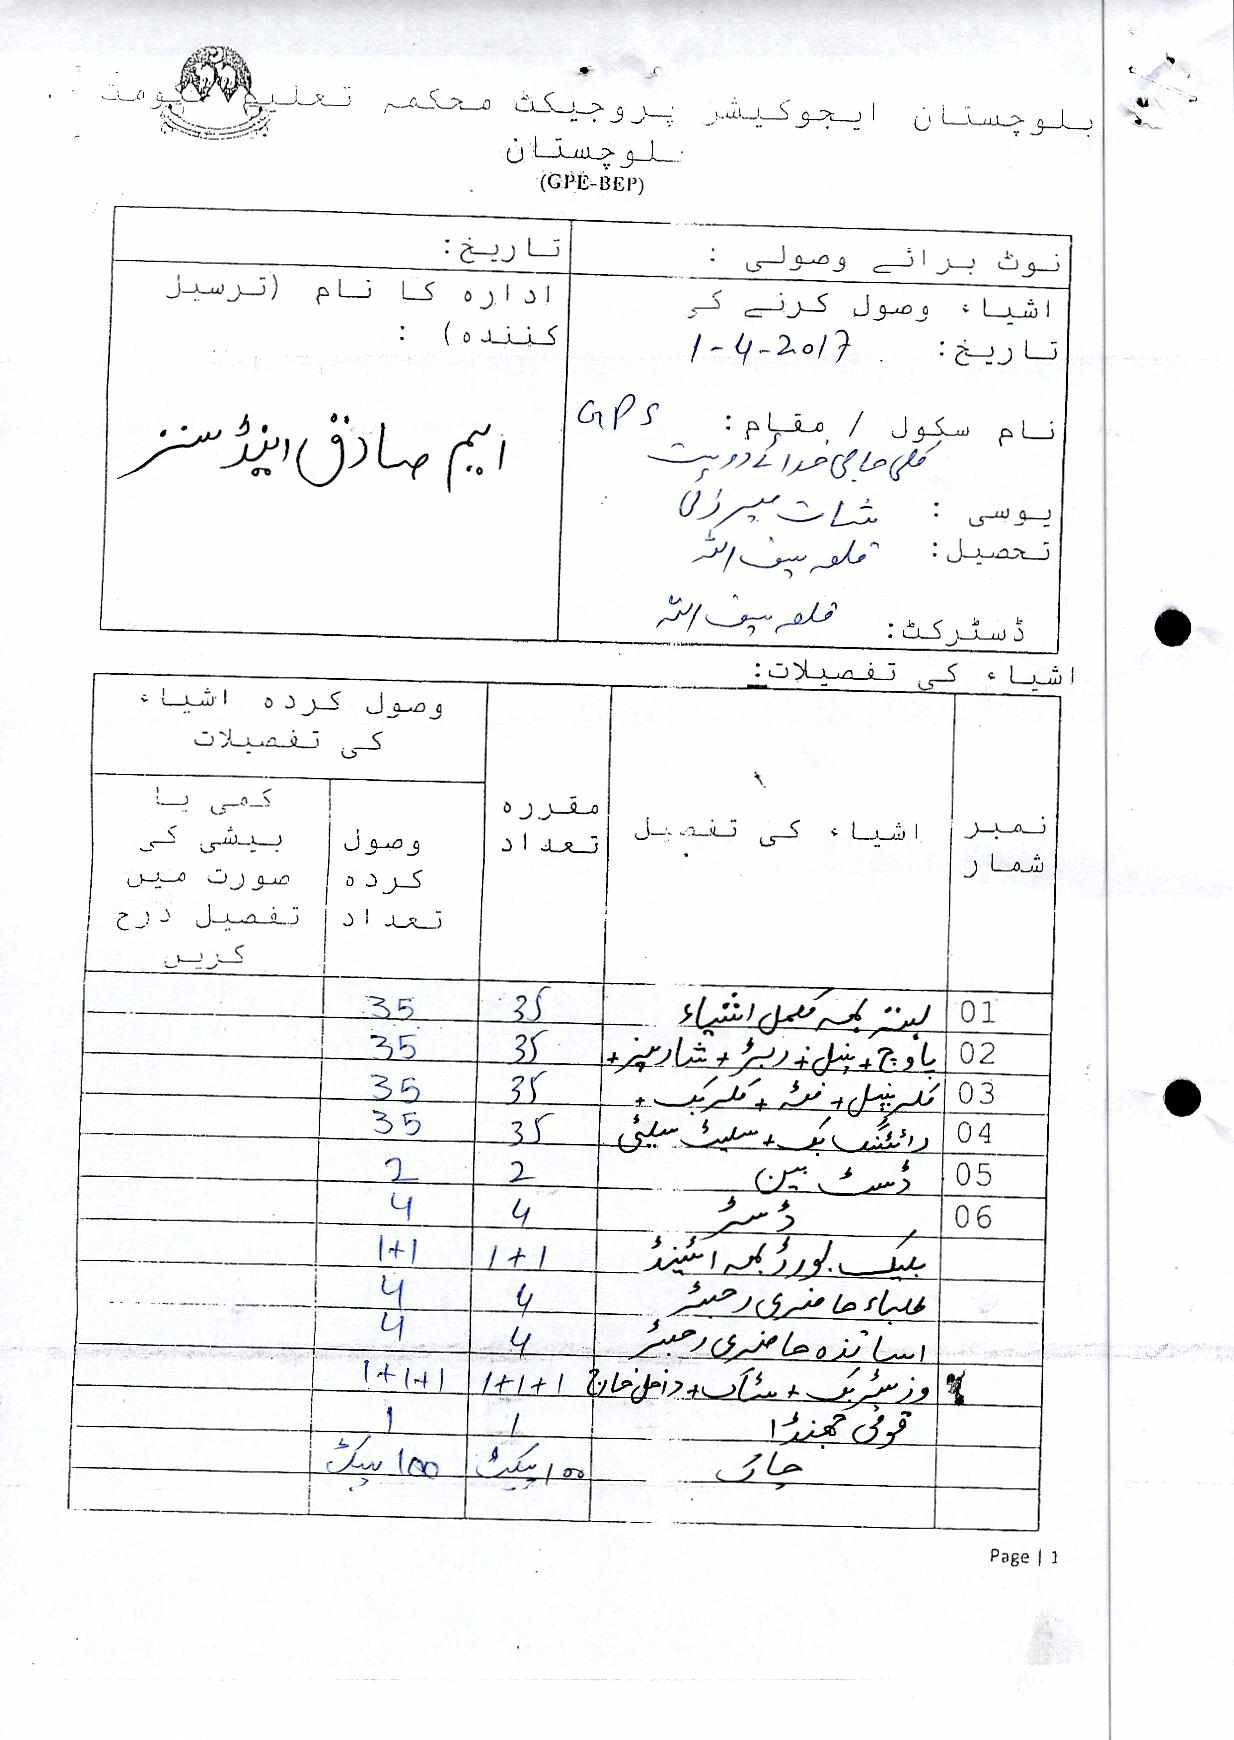 بلوچستان ایجوکیشن پروجیکٹ محکمہ تعلیم حکومت
بلوچستان
(GPE-BEP)
نوٹ برائے وصولی :
تاریخ:
اشیاء وصول کرنے کی
تاریخ: 1-4-2017
نام سکول / مقام: GPS
کلی حاجی خدائے دوست
یوسی :
تحصیل: قلعہ سیف اللہ
ڈسٹرکٹ: قلعہ سیف اللہ
ادارہ کا نام (ترسیل
کنندہ) :
ایم صادق اینڈ سنز
اشیاء کی تفصیلات:
نمبر شمار
اشیاء کی تفصیل
مقررہ تعداد
وصول کردہ اشیاء کی تفصیلات
وصول کردہ تعداد
کمی یا بیشی کی صورت میں تفصیل درج کریں
01 بستہ بمعہ مکمل اشیاء 35 35
02 پاوچ + پنسل + ربڑ + شارپنر + 35 35
03 کلر پنسل + فٹہ + کلر بک + 35 35
04 رائٹنگ بک + سلیٹ سلیٹی 35 35
05 ڈسٹ بین 2 2
06 ڈسٹر 4 4
بلیک بورڈ بمعہ اسٹینڈ 1+1 1+1
طلباء حاضری رجسٹر 4 4
اساتذہ حاضری رجسٹر 4 4
وزیٹر بک + سٹاک + داخل خارج 1+1+1 1+1+1
قومی جھنڈا 1 1
چاک 100 پیکٹ 100 پیکٹ
Page | 1